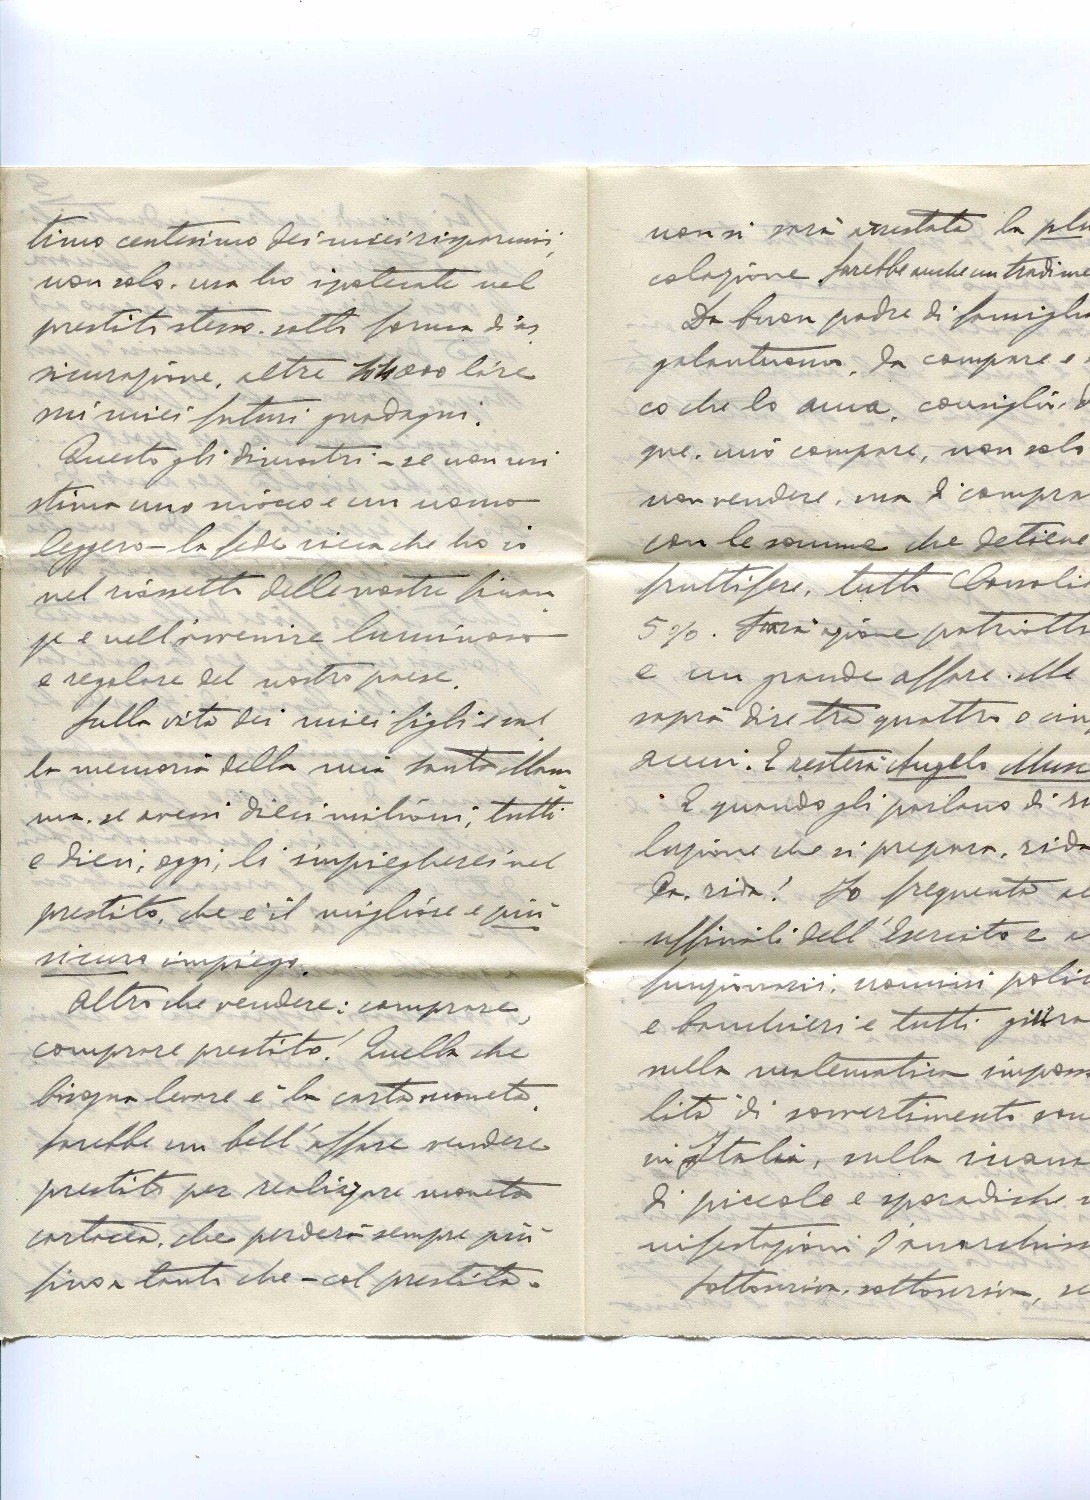 timo centesimo dei miei risparmi,
non solo, ma ho ipotecate nel
prestito stesso, sotto forma di as
sicurazione, altre 44000 lire
sui miei futuri guadagni.
Questo gli dimostri – se non mi
stima uno sciocco e un uomo
leggero – la fede sicura che ho io
nel riassetto delle nostre finan
ze e nell'avvenire luminoso
e regolare del nostro paese.
Sulla vita dei miei figli e sul
la memoria della mia santa Mam
ma, se avessi dieci milioni, tutti
e dieci, oggi, li impiegherei nel
prestito, che è il migliore e più
sicuro impiego.
Altro che vendere: comprare,
comprare prestito! Quella che
bisogna levare è la carta moneta.
Sarebbe un bell'affare vendere
prestito per realizzare moneta
cartacea, che perderà sempre più
fino a tanto che – col prestito –
non si sarà arrestata la
colazione sarebbe anche un tradime
Da buon padre di famiglia
galantuomo, da compare e
co che lo ama, consiglio, d
que, mio compare, non solo
non vendere, ma di compra
con le somme che detiene
fruttifere, tutto Consoli
5%. Farà azione patriott
e un grande affare. Me
saprà dire tra quattro o cin
anni. E resterà Angelo Mus
E quando gli parlano di
luzione che si prepara, rida
Pa, rida! Io frequento
ufficiali dell'Esercito e
funzionarii, uomini polit
e banchieri e tutti giura
sulla matematica imposs
lità di sovvertimento
in Italia, sulla
di piccole e sporadiche
nifestazioni d'anarchis
Sottoscriva, sottoscriva, se